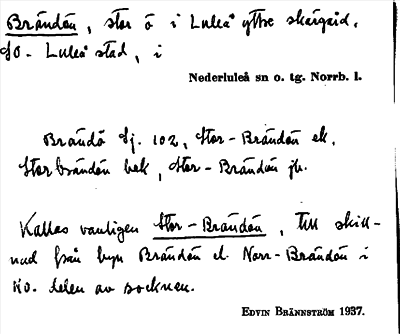 Brändön, stor ö i Luleå yttre skärgård,
SO. Luleå stad, i
Nederluleå sn o. tg. Norrb. l.
Brändö Sj. 102, Stor-Brändön ek.
Storbrändön bek, Stor-Brändön jb.
Kallas vanligen Stor-Brändön, till skill-
nad från byn Brändön el. Norr-Brändön i
NO. delen av socknen.
EDVIN BRÄNNSTRÖM 1937.